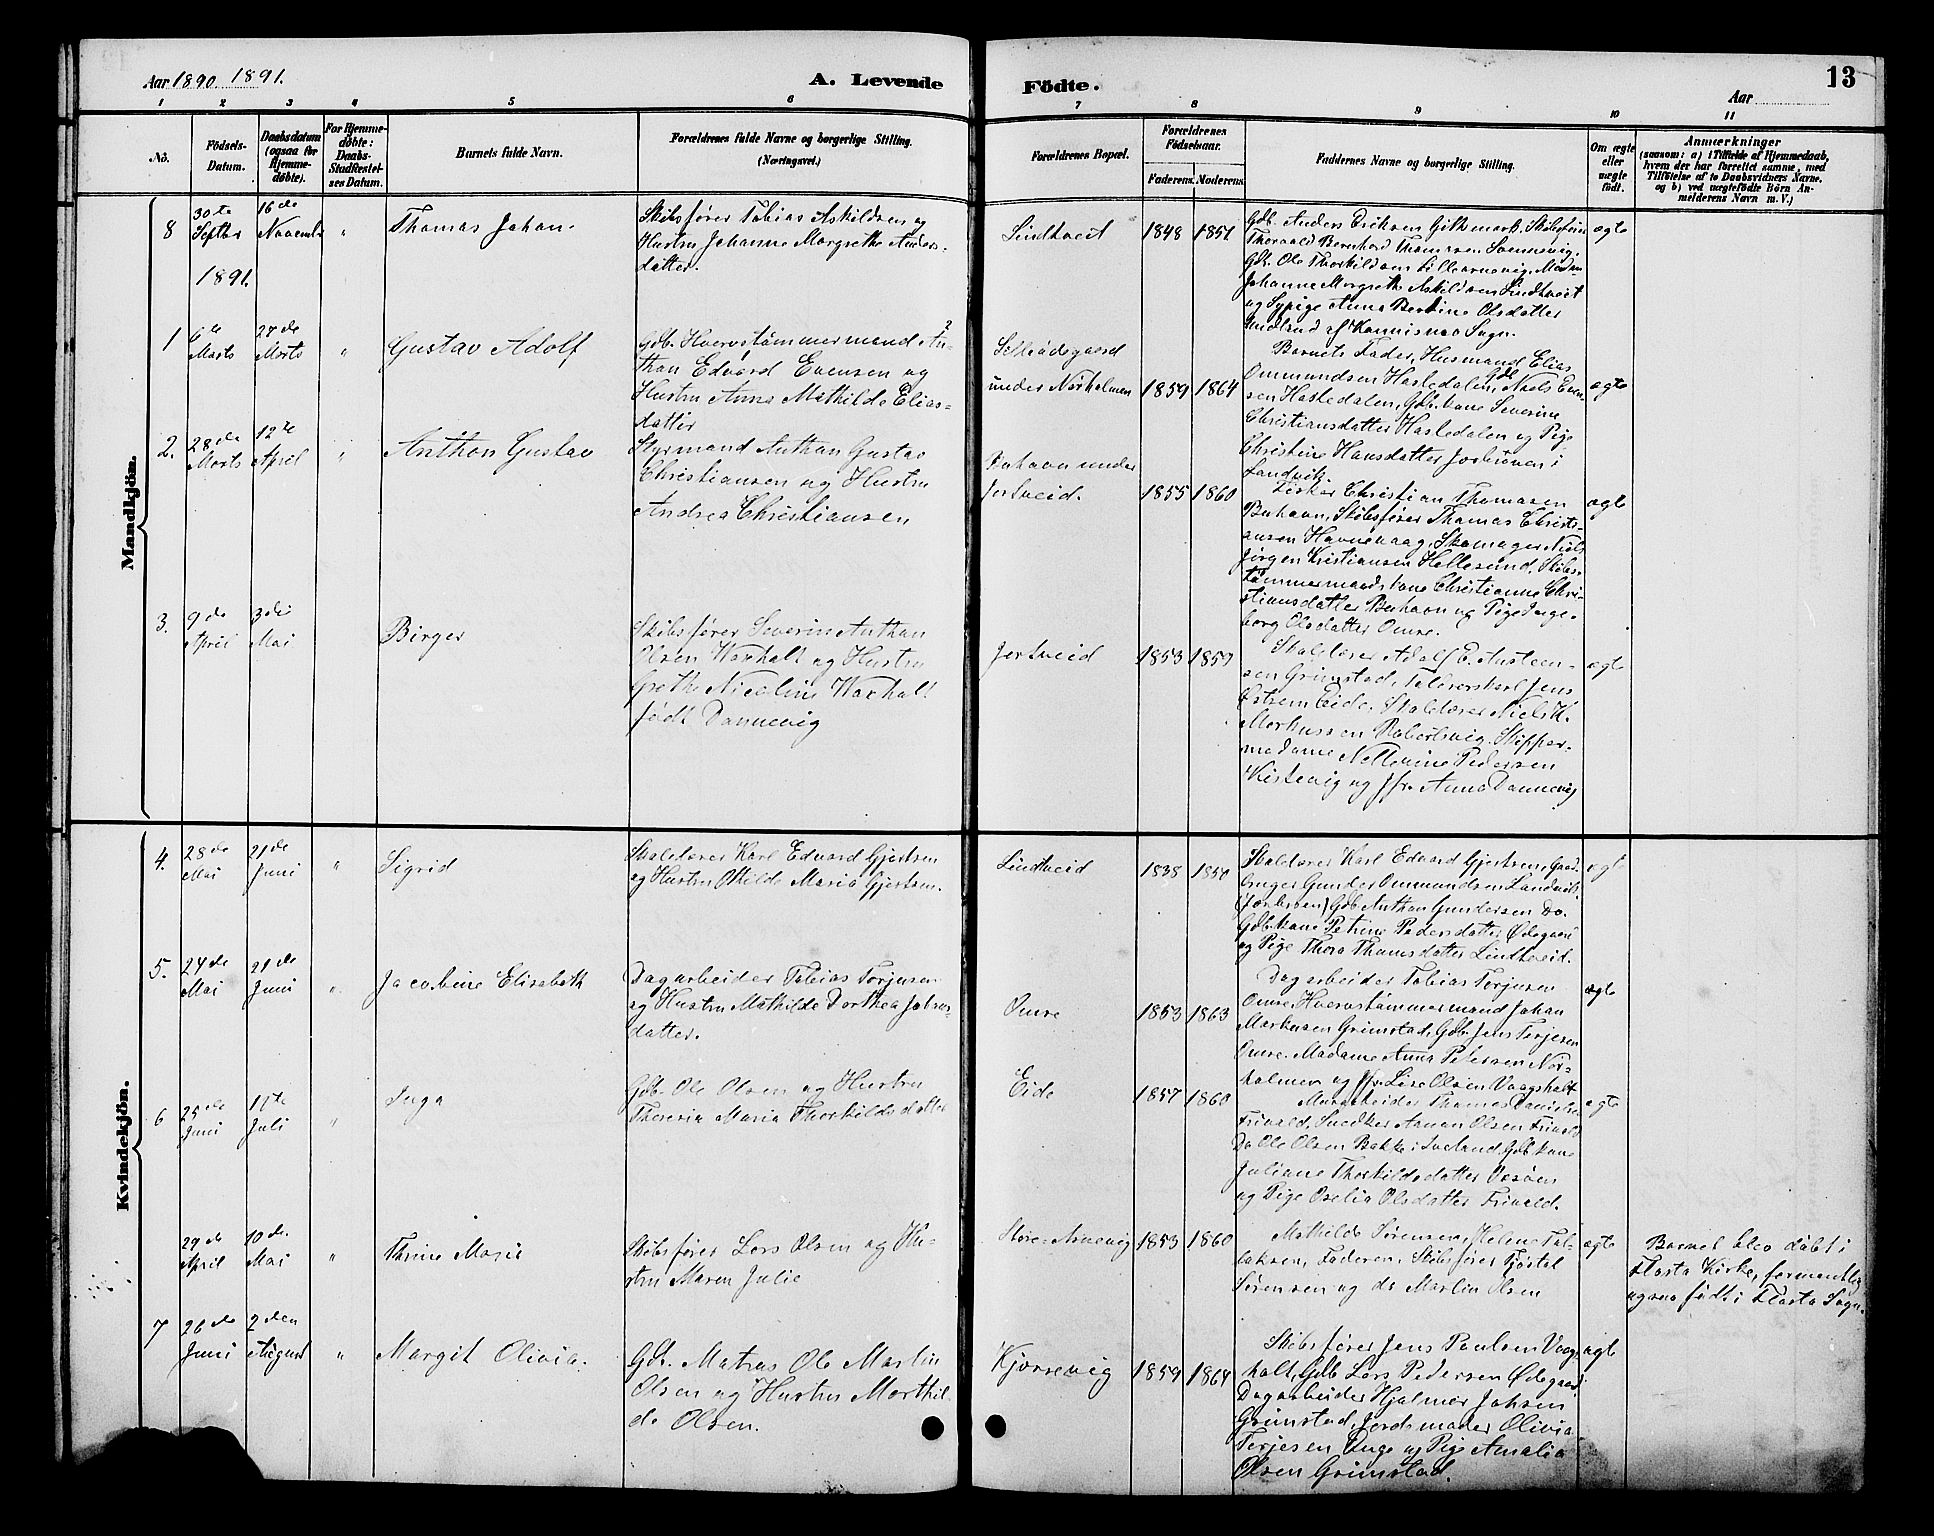 Aar 1890. 1891.
A. Levende
Födte.
Aar
13
1 2 3 4 5 6 7 8 9 10 11
No.
Födsels-
Datum.
Daabsdatum
(ogsaa for
Hjemme-
døbte).
For Hjemme-
døbte:
Daabs-
Stadfæstel-
ses Datum.
Barnets fulde Navn.
Forældrenes fulde Navne og borgerlige Stilling.
(Næringsvei.)
Forældrenes Bopæl.
Forældrenes
Födselsaar.
Faderens. Moderens.
Faddernes Navne og borgerlige Stilling.
Om ægte
eller
uægte
födt.
Anmærkninger
(saasom: a) i Tilfælde af Hjemmedaab,
hvem der har forrettet samme, med
Tilföielse af to Daabsvidners Navne.
og b) ved uægtefödte Börn An-
melderens Navn m. V.)
Mandkjön.
8
30te
Septbr
16de
Novemb
"
Thomas Johan.
Skibsfører Tobias Askildsen og
Hustru Johanne Margrethe Anders-
datter.
Lindtveit
1848 1851
Gdb. Anders Eriksen Githmark, Skibsfører
Thorvald Bernhard Thomsen Svennevig,
Gdb. Ole Thorkildsen Lillearnevig, Madam
Johanne Margrethe Askildsen Lindtveit
og Sypige Anna Bertine Olsdatter
af Sogn.
ægte
1891.
1
6te
Marts
27de
Marts
"
Gustav Adolf
Gdb. Hvervstømmermand An-
than Edvard Evensen og
Hustru Anna Mathilde Elias-
datter
under Nørholmen
1859 1864
Barnets Fader, Husmand Elias
Ommundsen Hasledalen, Gdb. Niels Even-
sen Hasledalen, Gdb.kone Severine
Christiansdatter Hasledalen og Pige
Christine Hansdatter i
Landvik.
ægte
2.
28de
Marts
12te
April
"
Anthon Gustav
Styrmand Anthon Gustav
Christiansen og Hustru
Andrea Christiansen
Buhavn under
Jortveid.
1855 1860
Fisker Christian Thomasen
Buhavn, Skibsfører Thomas Christi-
ansen Havnevaag, Skomager Niels
Jørgen Kristiansen Hellesund, Skibs-
tømmermandskone Christianne Chri-
stiansdatter Buhavn og Pige Inge-
borg Olsdatter Omre.
ægte
3.
9de
April
3die
Mai
Birger
Skibsfører Severin Anthon
Olsen Waxholt og Hustru
Grethe Nicoline Waxholt
født Dannevig
Jortveid
1853 1857
Skolelærer Adolf E. Austeen-
sen Grimstad, Toldroerskarl Jens
Østrem Eide, Skolelærer Niels K.
Markussen Robertsvig, Skipper-
madame Nellevine Pedersen
Kistevig og Jfr. Anna Dannevig
ægte
Kvindekjön.
4.
28de
Mai
21de
Juni
"
Sigrid
Skolelærer Karl Edvard Gjertsen
og Hustru Othilde Maria Gjertsen.
Lindtveid
1838 1850
Skolelærer Karl Edvard Gjertsen, Gaard-
bruger Gunder Ommundsen Landvik
Gdb. Anthon Gundersen Do.
Gdb.kone Petrine Pedersdatter Ødegaard
og Pige Thora Thomsdatter Lindtveid.
ægte
5.
24de
Mai
21de
Juni
"
Jacobine Elisabeth
Dagarbeider Tobias Terjesen
og Hustru Mathilde Dorthea Johns-
datter.
Omre
1853 1863
Dagarbeider Tobias Terjesen
Omre, Hvervstømmermand Johan
Markusen Grimstad, Gdb. Jens Terjesen
Omre. Madame Anna Petersen Nor-
holmen og Jfr. Lise Olsen Vaagsholt
ægte
6
25de
Juni
11te
Juli
"
Inga
Gdb. Ole Olsen og Hustru
Theresia Maria Thorkildsdatter
Eide
1857 1860
Murarbeider Thomas Danielsen
Frivold, Snedker Aanon Olsen Frivold
Do Ole Olsen Bakke i Iveland, Gdb.kone
Juliane Thorkildsdatter Vesøen
og Pige Oselia Olsdatter Frivold.
ægte
29de
April
10de.
Mai
"
Thrine Marie
Skibsfører Lars Olsen og Hu-
stru Maren Julie
Store-Arnevig
1853 1860
Mathilde Sørensen, Helene Tal-
laksen, Faderen, Skibsfører Tjøstal
Sørensen og do Martin Olsen
ægte
Barnet blev døbt i
Flosta Kirke, formentlig
ogsaa født i Flosta Sogn.
7
26de
Juni
2den
August
"
Margit Olivia.
Gdb. Matros Ole Martin
Olsen og Hustru Marthil-
de Olsen.
Kjørrevig
1859 1864
Skibsfører Jens Paulsen Vaag-
holt, Gdb Lars Pedersen Ødegaard
Dagarbeider Hjalmer Johsen
Grimstad, Jordemoder Olivia
Terjesen Inge og Pige Amalia
Olsen Grimstad.
ægte